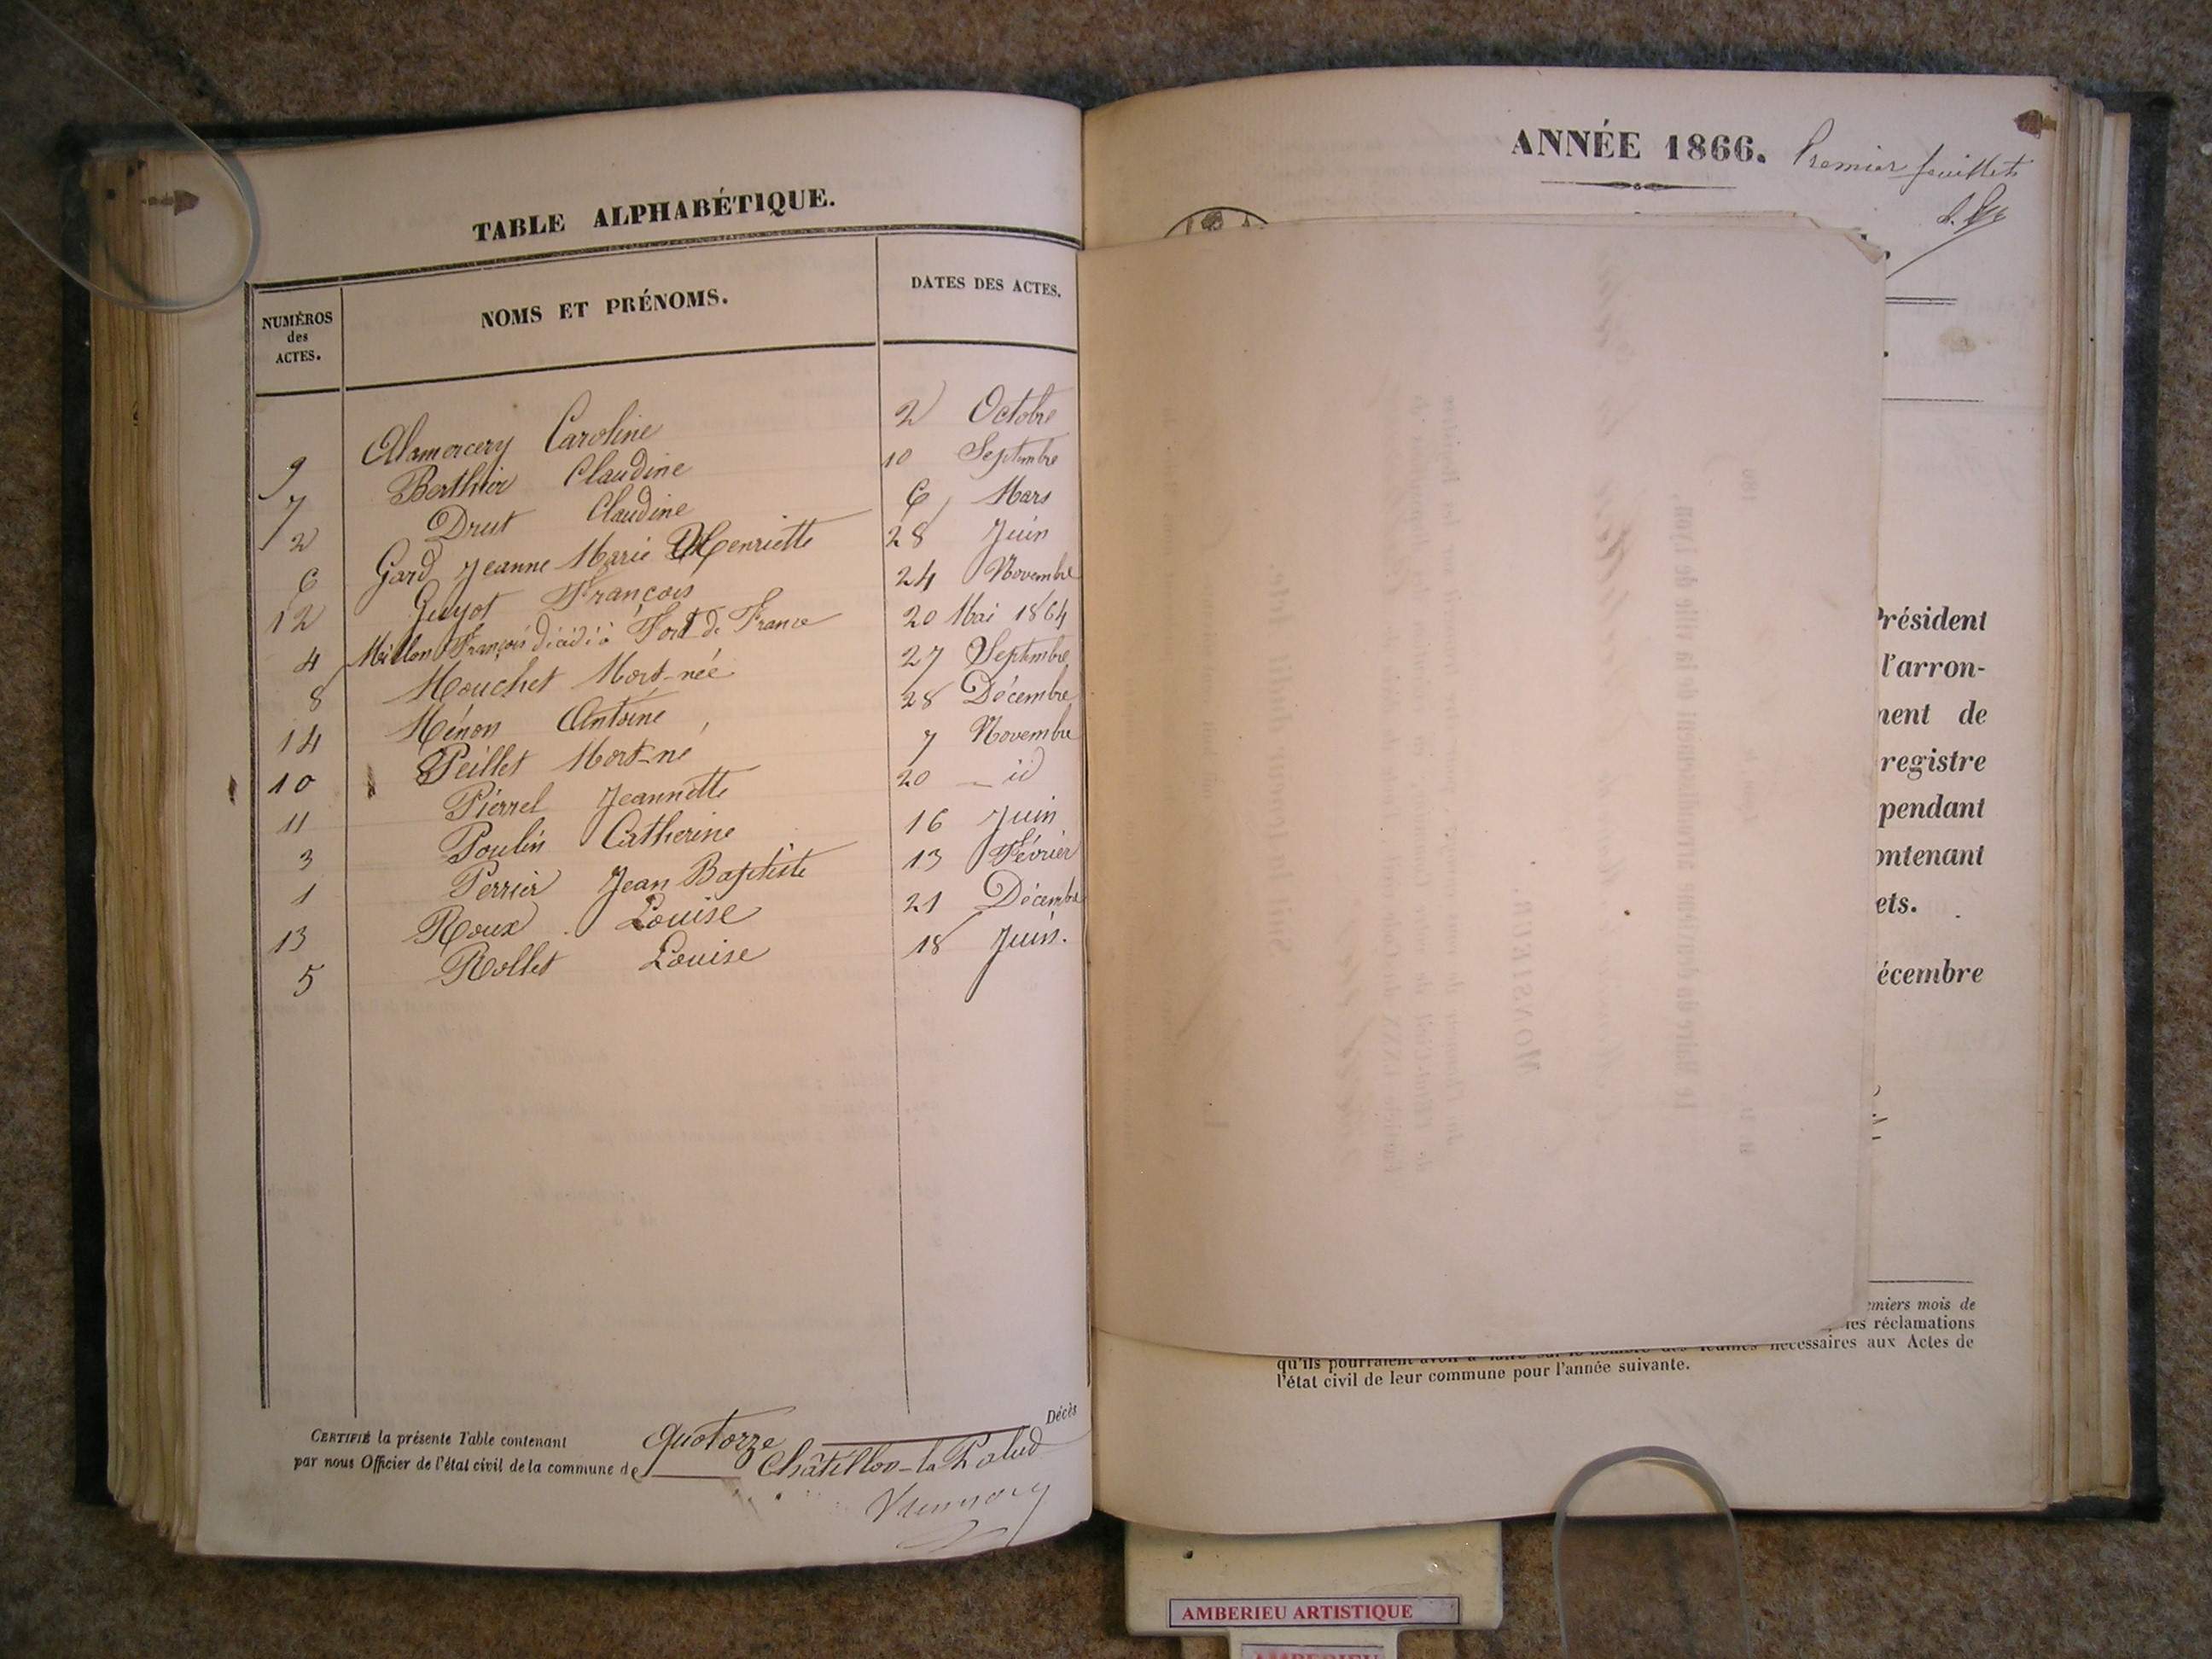 TABLE ALPHABÉTIQUE.
NUMÉROS des ACTES.
NOMS ET PRÉNOMS.
DATES DES ACTES.
9 Alamercery Caroline 2 Octobre
7 Berthier Claudine 10 Septembre
2 Drut Claudine 6 Mars
6 Gard Jeanne Marie Henriette 28 Juin
12 Guyot François 24 Novembre
4 Millon François décédé à Fort de France 20 Mai 1864
8 Mouchet Mort-née 27 Septembre
14 Ménon Antoine 28 Décembre
10 Peillet Mort-né 7 Novembre
11 Pierrel Jeannette 20 id
3 Poulin Catherine 16 Juin
1 Perrier Jean Baptiste 13 Février
13 Roux Louise 21 Décembre
5 Rollet Louise 18 Juin.
CERTIFIÉ la présente Table contenant quatorze Décès
par nous Officier de l'état civil de la commune de Châtillon-la-Palud
ANNÉE 1866. Premier feuillet
Président
l'arron-
ment de
registre
pendant
ontenant
ets.
écembre
emiers mois de
les réclamations
qu'ils pourraient avoir à faire sur le nombre des feuilles nécessaires aux Actes de
l'état civil de leur commune pour l'année suivante.
AMBERIEU ARTISTIQUE
AMBERIEU